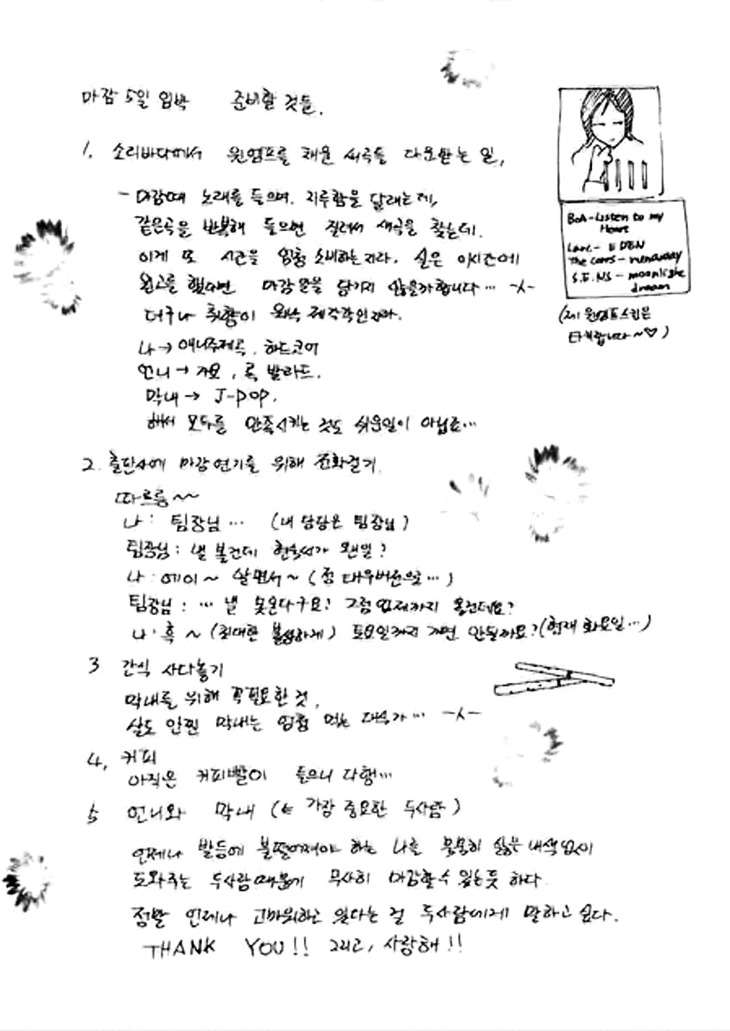 마감 5일 임박 준비할 것들.
1. 소리바다에서 윈엠프를 채울 새곡들 다운받는 일,
- 마감때 노래를 들으며, 지루함을 달래는데,
같은곡을 반복해 들으면 질려서 새곡을 찾는데.
이게 또 시간을 엄청 소비하는지라. 실은 이시간에
원고를 했다면 마감일을 넘기지 않을까합니다... -ㅅ-
더구나 취향이 워낙 제각각인지라.
나 → 애니주제곡, 하드코어
언니 → 가요, 록 발라드.
막내 → J-POP.
해서 모두를 만족시키는 것도 쉬운일이 아닙죠...
BoA-Listen to my
Heart
Larc- EDEN
The corrs- runaway
S.E.NS - moonlight
dream
(제 윈엠프스킨은
타키랍니다~♡)
2. 출판사에 마감연기를 위해 전화걸기.
따르릉~~
나: 팀장님... (내 담당은 팀장님)
팀장님: 낼 볼건데 현숙씨가 웬일?
나: 에이~ 살면서~ (정 대우버전으로...)
팀장님: ... 낼 못온다구요? 그럼 언제까지 올건데요?
나: 흑~ (최대한 불쌍하게) 토요일까지 가면 안될까요? (현재 화요일...)
3 간식 사다놓기
막내를 위해 꼭필요한 것,
살도 안찐 막내는 엄청 먹는 대식가... -ㅅ-
4, 커피
아직은 커피빨이 들으니 다행...
5 언니와 막내 (← 가장 중요한 두사람)
언제나 발등에 불떨어져야 하는 나를 묵묵히 싫은 내색없이
도와주는 두사람때문에 무사히 마감할 수 있는듯 하다.
정말 언제나 고마워하고 있다는 걸 두사람에게 말하고 싶다.
THANK YOU!! 그리고, 사랑해!!